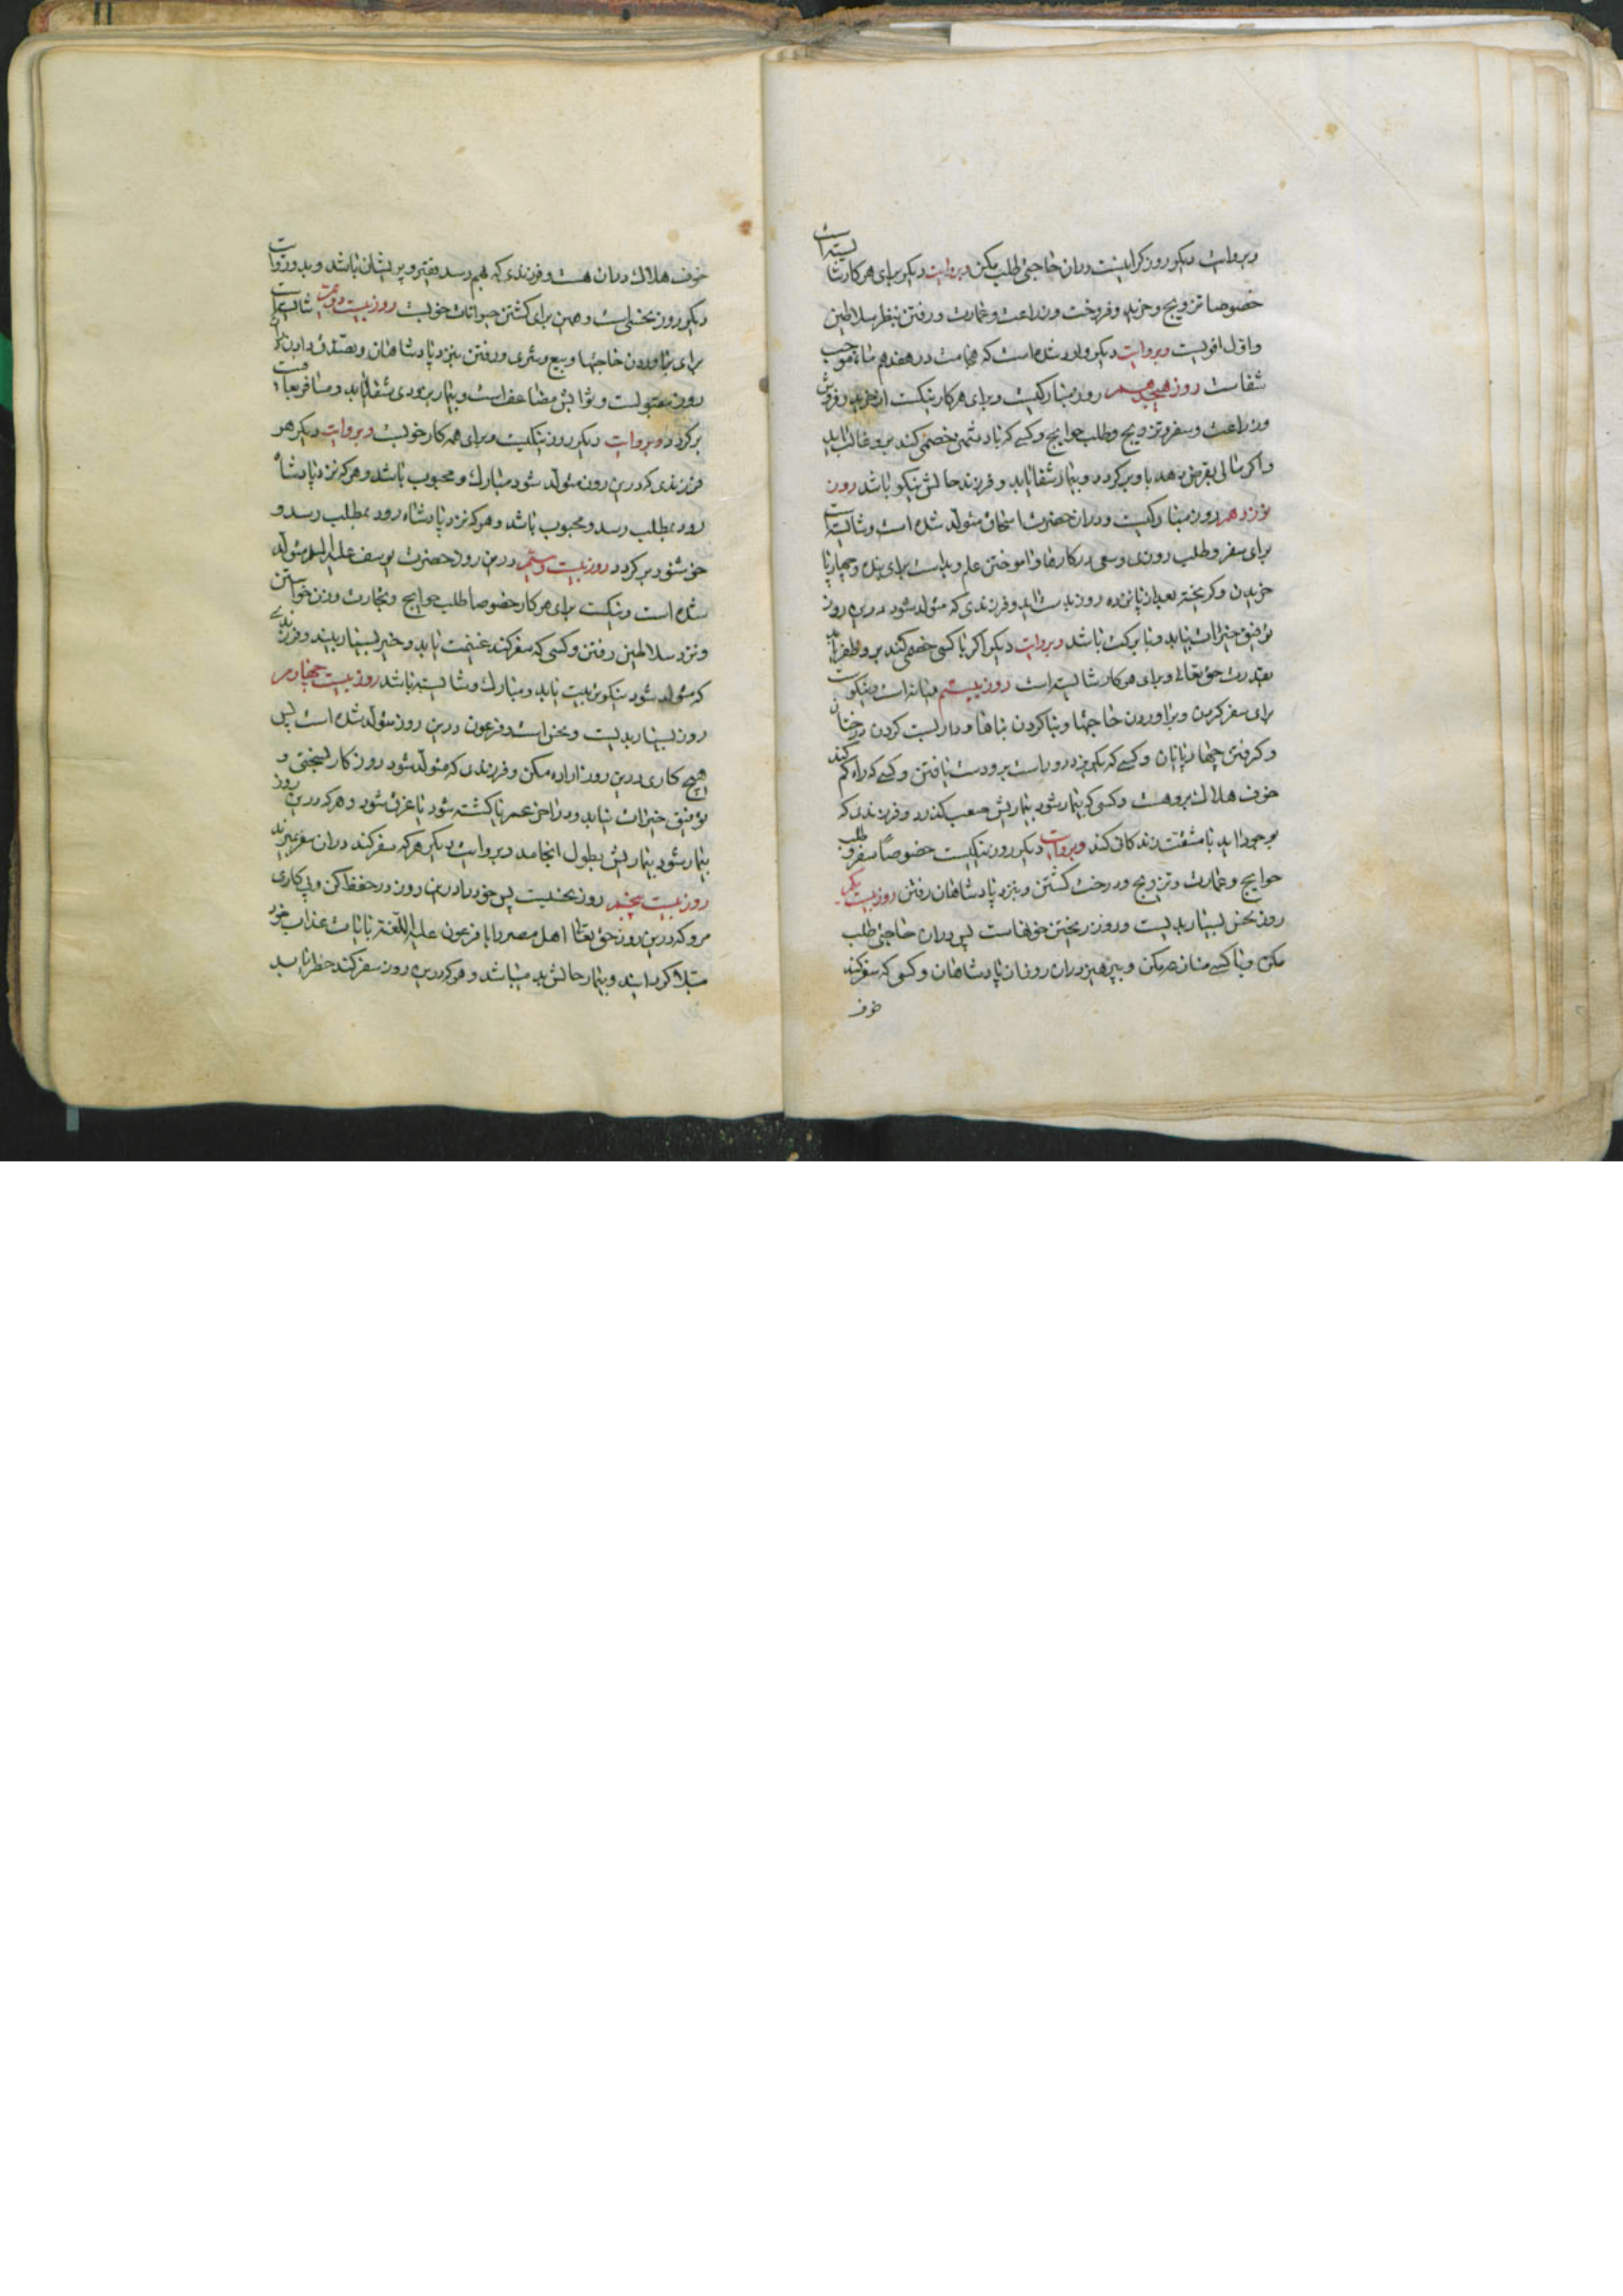 و بروایت دیگر روز گرانیست در ان حاجتی طلب مکن و بروایت دیگر برای هر کار شایسته است
خصوصا تزویج و خرید و فروخت و زراعت و عمارت و رفتن بنظر سلاطین
و اول اقویست و بروایت دیگر وارد شده است که حجامت در هفدهم ماه موجب
شفاست روز هیجدهم روز مبارکیست و برای هر کار نیکست از خرید و فروش
و زراعت و سفر و تزویج و طلب حوایج و کسی که با دشمنی خصمی کند برو غالب اید
و اگر مالی بقرض بدهد باو برگردد و بیمار شفا یابد و فرزند حالش نیکو باشد روز
نوزدهم روز مبارکیست و در ان حضرت اسحاق متولد شده است و شایسته است
برای سفر و طلب روزی و سعی در کارها و اموختن علم و بد است برای بنده و چهارپا
خریدن و گریخته بعد از پانزده روز بدست اید و فرزندی که متولد شود در این روز
توفیق خیرات بیابد و با برکت باشد و بروایت دیگر اگر با کسی خصمی کند برو ظفر یابد
بقدرت حق تعالی و برای هر کار شایسته است روز بیستم میانه است و نیکوست
برای سفر کردن و براوردن حاجتها و بنا کردن بناها و داربست کردن درختان
و گرفتن چهارپایان و کسی که بگریزد دور است برو دست یافتن و کسی که راه گم کند
خوف هلاک برو هست و کسی که بیمار شود بیماریش صعب بگذرد و فرزندی که
بوجود اید با مشقت زندگانی کند و بروایت دیگر روز نیکیست خصوصا سفر و طلب
حوایج و عمارت و تزویج و درخت کشتن و بنزد پادشاهان رفتن روز بیست یکم
روز نحس بسیار بدیست و روز ریختن خونهاست پس در ان حاجتی طلب
مکن و با کسی منازعه مکن و بپرهیز در ان روز از پادشاهان و کسی که سفر کند
خوف
خوف هلاک در ان هست و فرزندی که بهم رسد فقیر و پریشان باشد و بدو روایت
دیگر روز نحسی است و همین برای کشتن حیوانات خوبست روز بیست دویم شایسته است
برای براوردن حاجتها و بیع و شری و رفتن بنزد پادشاهان و تصدق دادن در این
روز مقبولست و ثوابش مضاعف است و بیمار بزودی شفا یابد و مسافر بعافیت
برگردد و بروایت دیگر روز نیکیست و برای همه کار خوبست و بروایت دیگر هر
فرزندی که در این روز متولد شود مبارک و محبوب باشد و هر که نزد پادشاه
رود بمطلب رسد و محبوب باشد و هر که نزد پادشاه رود بمطلب رسد و
خوشنود برگردد روز بیست و سیم در این روز حضرت یوسف علیه السلم متولد
شده است و نیکست برای هر کار خصوصا طلب حوایج و تجارت و زن خواستن
و نزد سلاطین رفتن و کسی که سفر کند غنیمت یابد و خیر بسیار بیند و فرزندی
که متولد شود نیکو تربیت یابد و مبارک و شایسته باشد روز بیست چهارم
روز بسیار بدیست و نحس است و فرعون در این روز متولد شده است پس
هیچ کاری در این روز اراده مکن و فرزندی که متولد شود روزگار بسختی و
توفیق خیرات نیابد و در اخر عمر یا کشته شود یا غرق شود و هر که در این روز
بیمار شود بیماریش بطول انجامد و بروایت دیگر هر که سفر کند در ان سفر بمیرد
روز بیست پنجم روز نحسیست پس خود را در این روز در حفظ کن و پی کاری
مرو که در این روز حق تعالی اهل مصر را با فرعون علیه اللعنه بایات عذاب خود
مبتلا گردانید و بیمار حالش بد میباشد و هر که در این روز سفر کند خطر یابد